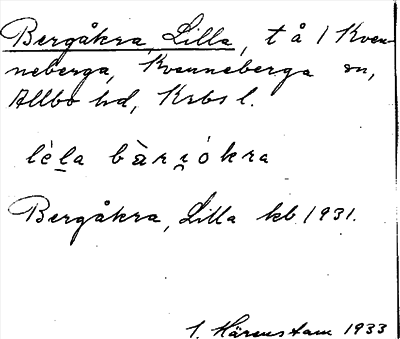 Bergåkra, Lilla, t å 1 Kven-
neberga, Kvenneberga sn,
Allbo hd, Krbs l.
lèla bàrjókra
Bergåkra, Lilla kb 1931.
1. Härenstam 1933